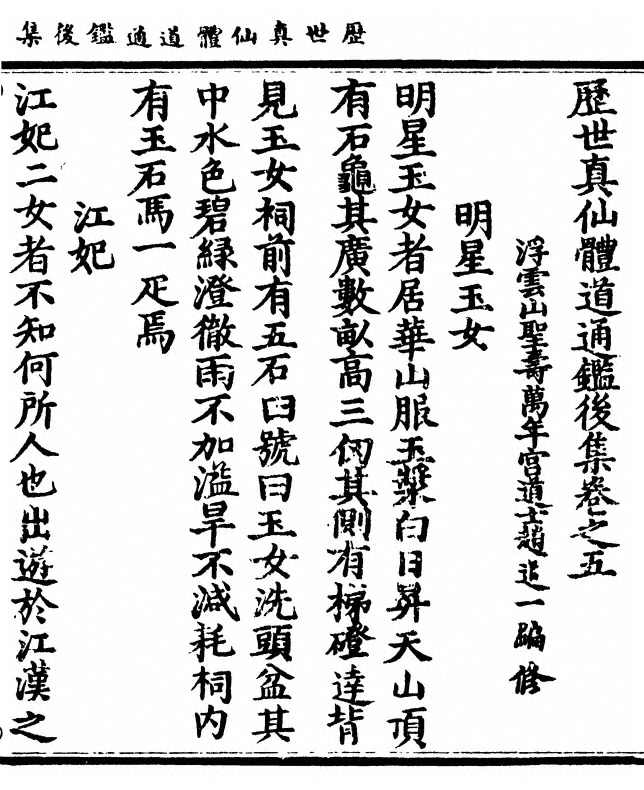 歷世真仙體道通鑑後集
歷世真仙體道通鑑後集卷之五
浮雲山聖壽萬年宮道士趙道一編修
明星玉女
明星玉女者居華山服玉漿白日昇天山頂
有石龜其廣數畝高三仞其側有梯磴逹背
見玉女祠前有五石臼號曰玉女洗頭盆其
中水色碧綠澄徹雨不加溢旱不減耗祠内
有玉石馬一疋焉
江妃
江妃二女者不知何所人也出遊於江漢之